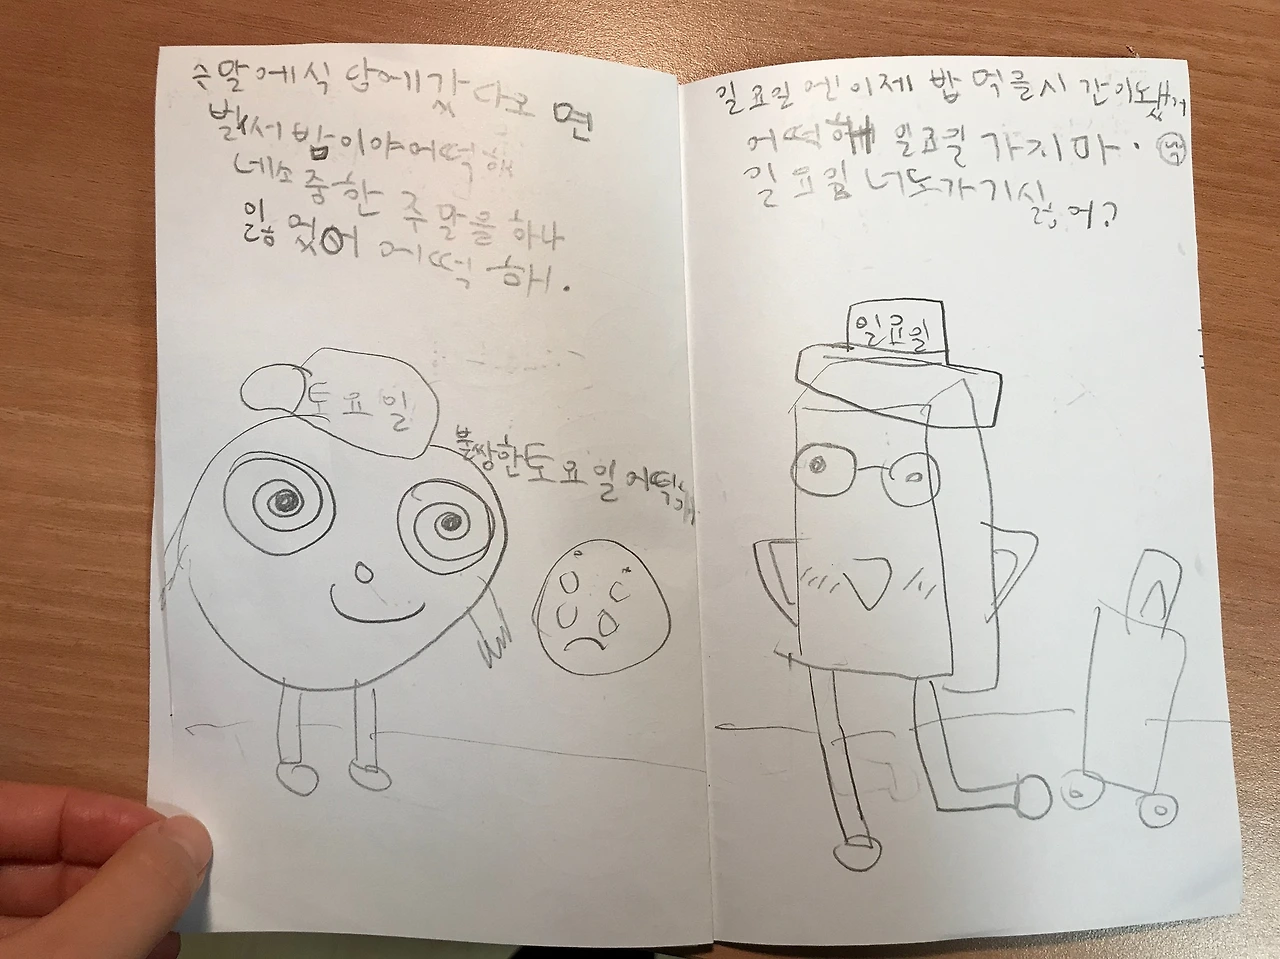 주말에 식담에 갔다오면
벌써 밤이야 어떡해
네소중한 주말을 하나
잃었어 어떡해.
토요일
불쌍한토요일어떡해
일요일엔 이제 밥 먹을시간이됐거
어떡해 일요일 가지마.
일요일 너도가기싫어?
일요일